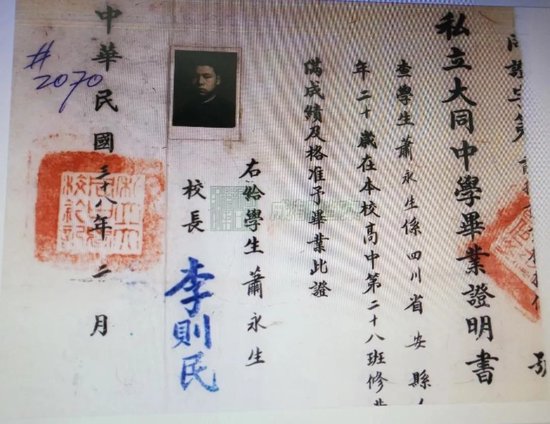 私立大同中學畢業證明書
查學生蕭永生係四川省安縣人
年二十歲在本校高中第二十八班修業
滿成績及格准予畢業此證
右給學生蕭永生
校長 李則民
中華民國三十八年二月
#2070